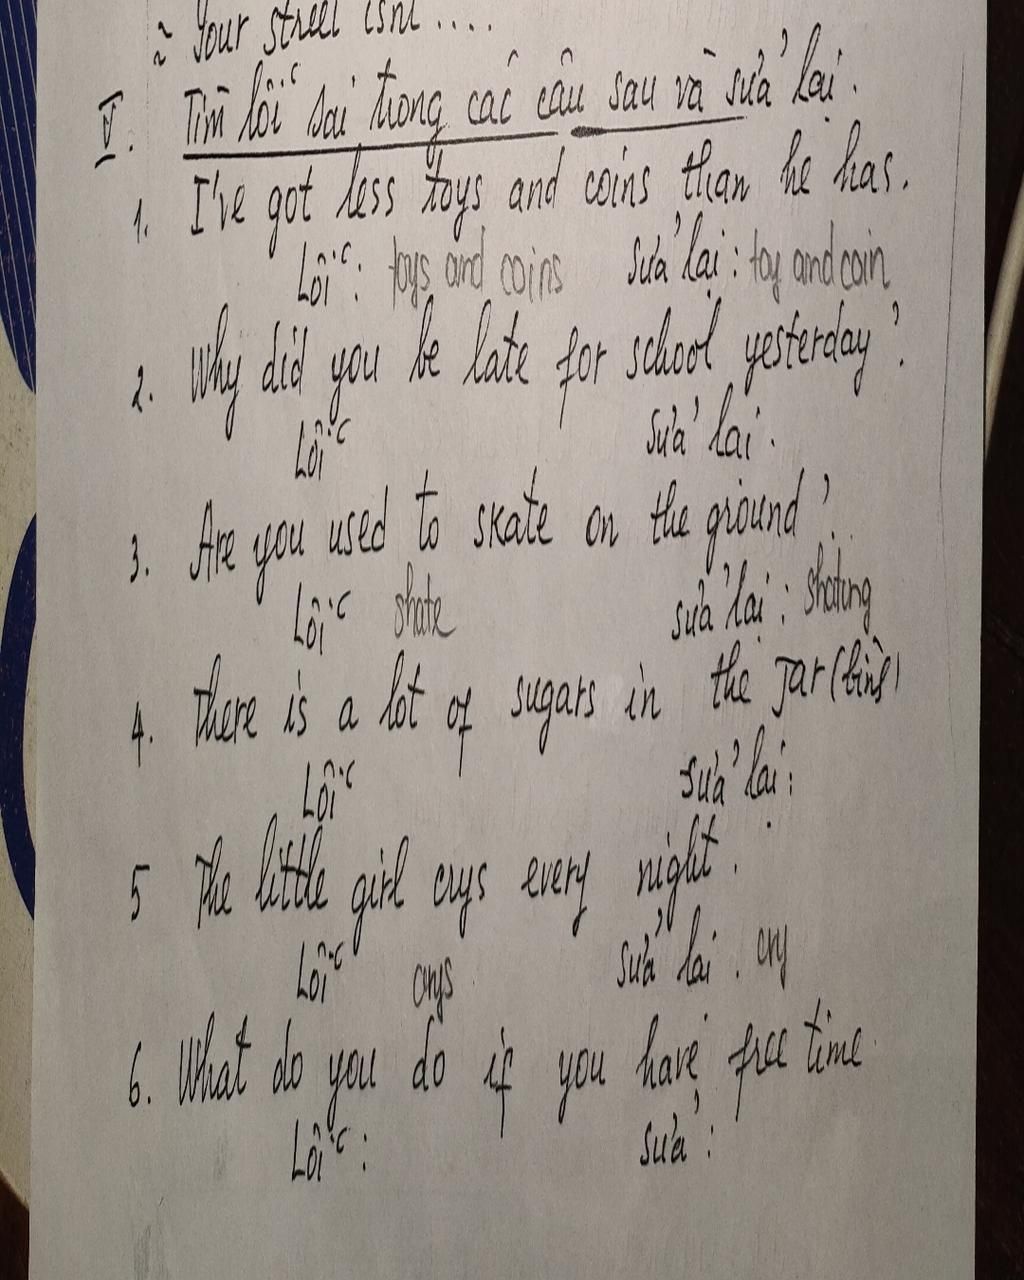 ≈ Your street isn't ....
V. Tìm lỗi sai trong các câu sau và sửa lại.
1. I've got less toys and coins than he has.
Lỗi: toys and coins sửa lại: toy and coin
2. Why did you be late for school yesterday?
Lỗi sửa lại.
3. Are you used to skate on the ground?
Lỗi skate sửa lại: skating
4. There is a lot of sugars in the Jar (bình)
Lỗi sửa lại:
5 The little girl crys every night.
Lỗi crys sửa lại. cry
6. What do you do if you have free time
Lỗi: sửa: